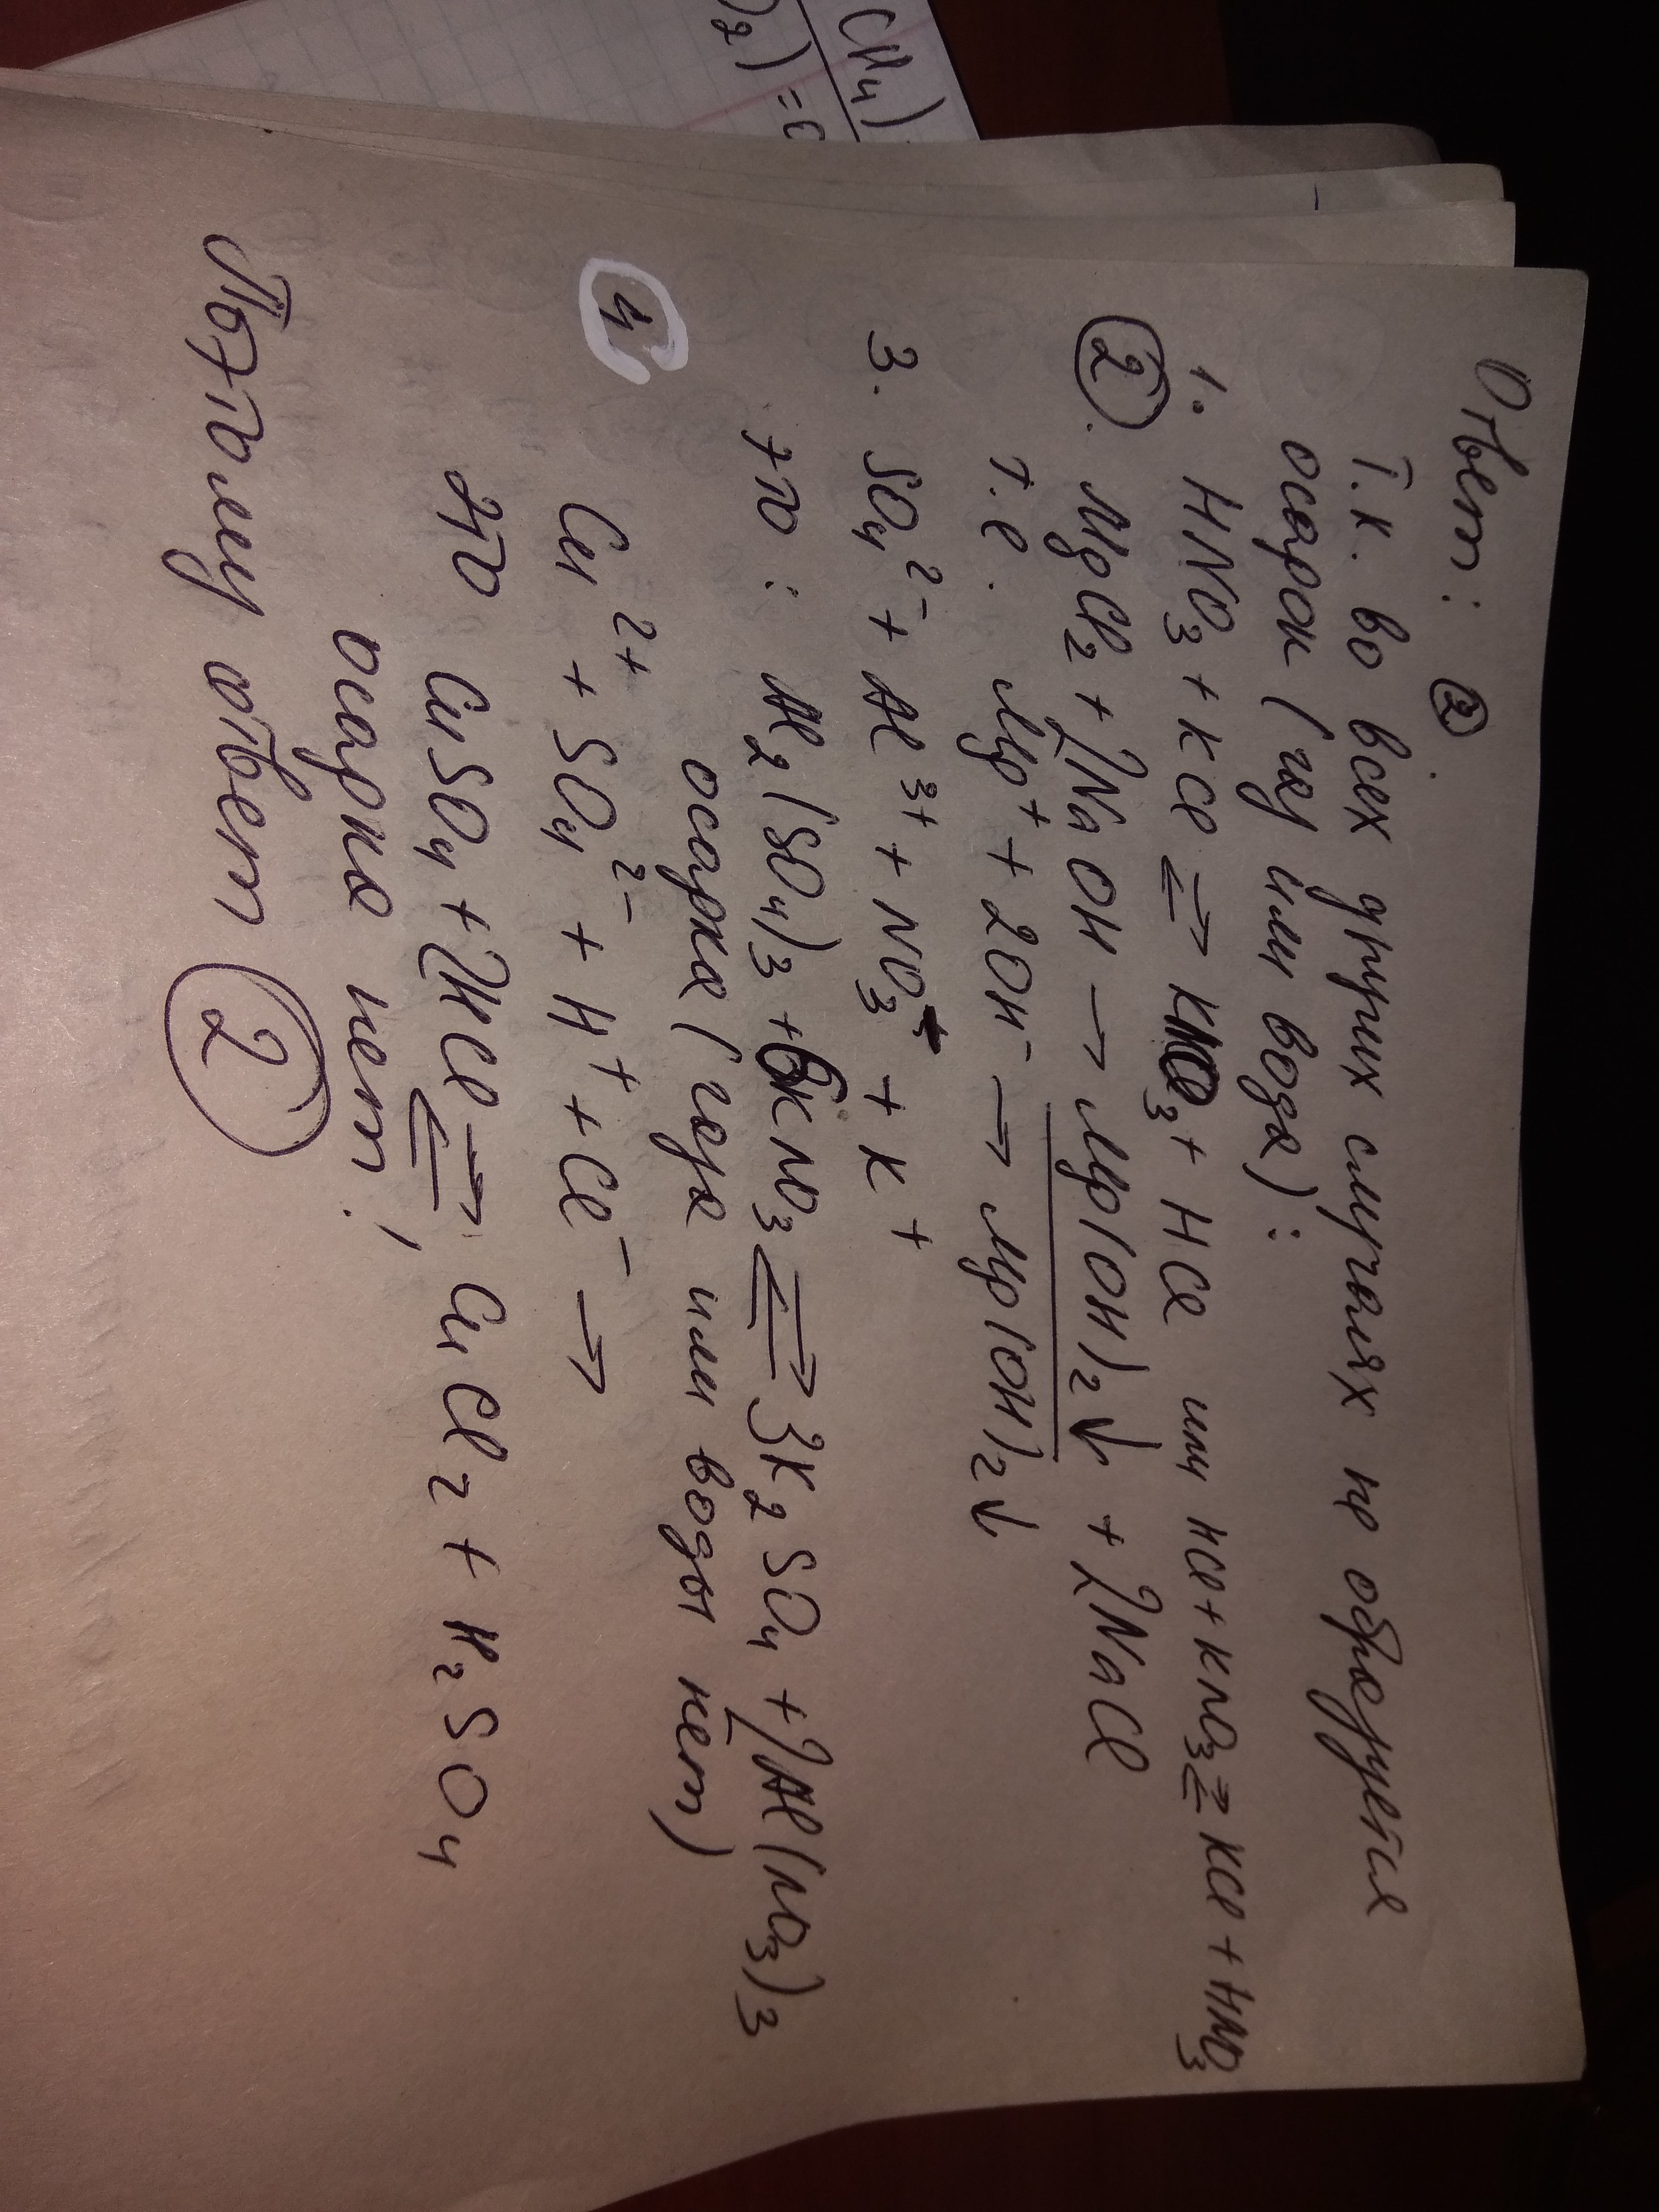 CH₄)
)₂) = 0
Ответ: ②.
Т.к. во всех других случаях не образуется
осадок (газ или вода):
1. HNO₃ + KCl ⇄ KNO₃ + HCl или HCl + KNO₃ ⇄ KCl + HNO₃
②. MgCl₂ + 2NaOH → Mg(OH)₂↓ + 2NaCl
т.е. Mg⁺ + 2OH⁻ → Mg(OH)₂↓
3. SO₄²⁻ + Al³⁺ + NO₃⁻ + K⁺
то: Al₂(SO₄)₃ + 6KNO₃ ⇄ 3K₂SO₄ + 2Al(NO₃)₃
осадка (газа или воды нет)
4 Cu²⁺ + SO₄²⁻ + H⁺ + Cl⁻ →
это CuSO₄ + 2HCl ⇄ CuCl₂ + H₂SO₄
осадка нет!
Поэтому ответ ②